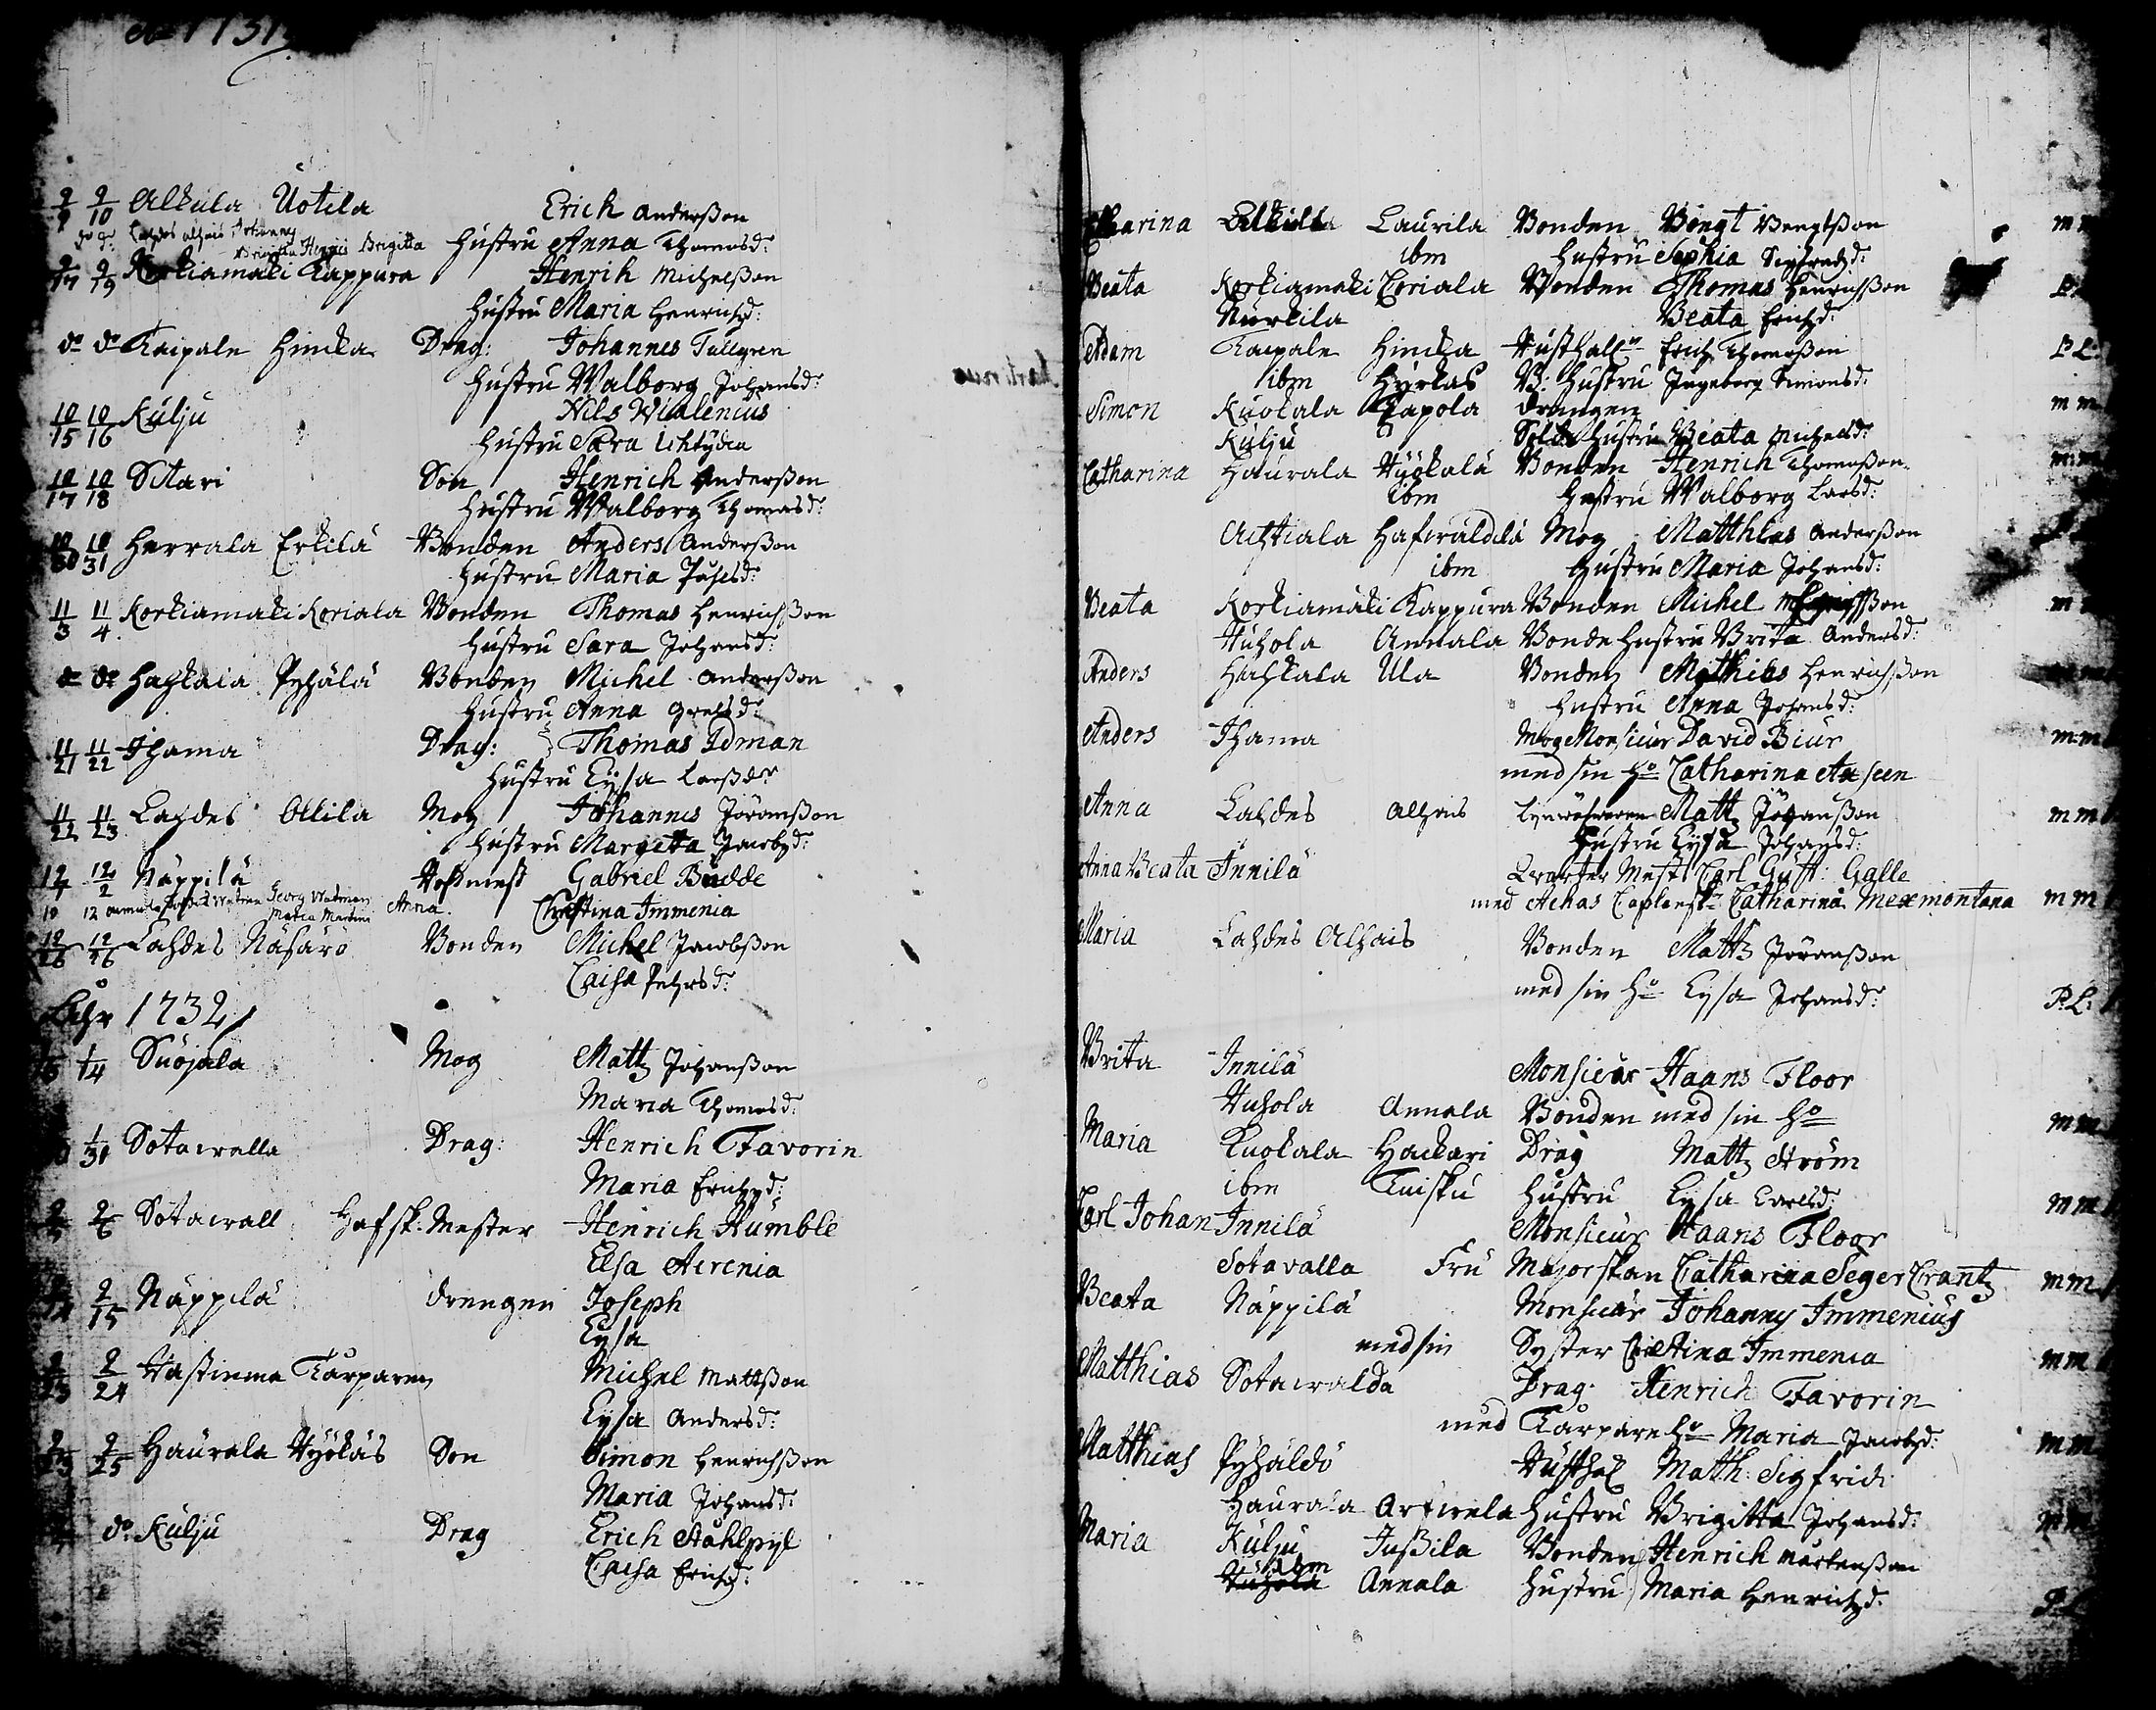 Ao 1731
9/9 9/10 Alkula Uotila Erich Anderßon
do do Lahdes Alhais Johanny
Brigitta Henrici Brigitta Hustru Anna Thomasd:
9/17 9/19 Korkiamäki Kappura Henrih Michelßon
Hustru Maria Henrichzd:
do do Kaipale Hincka Drag: Johannes Tullgren
Hustru Walborg Johansd:
10/15 10/16 Kulju Nils Wialenius
Hustru Sara Uhtydia
10/17 10/18 Sitari Son Henrich Anderßon
Hustru Walborg Thomasd:
10/30 10/31 Herrala Erkilä Bonden Anders Anderßon
Hustru Maria Juhsd:
11/3 11/4 Korkiamäki Koriala Bonden Thomas Henrichßon
Hustru Sara Johansd:
do do Hahkala Pyhälä Bonden Michel Anderßon
Hustru Anna Grelsd:
11/21 11/22 Ihama Drag: Thomas Idman
Hustru Eysa Larßdr
11/22 11/23 Lahdes Ollila Mog Johannes Jöranßon
Hustru Margetta Jacobzd:
12/1 12/2 Näppilä Hofmest Gabriel Budde
10 12 Georg Wadman
Maria Martini Anna Christina Immenia
12/26 12/26 Lahdes Näsärö Bonden Michel Jacobßon
Caisa Pehrsd:
Åhr 1732
1/4 Suojala Mog Mattz Johanßon
Maria Thomsd:
1/31 Sotawalla Drag: Henrich Favorin
Maria Erichzd:
2/6 Sotawall Hafsk: Mester Henrich Humble
Elsa Aerenia
2/14 2/15 Näppilä drengen Joseph
Eysa
2/23 2/24 Hastinma Karparen Michel Mattßon
Eysa Andersd:
2/23 2/25 Haurala Hyökäs Son Simon Henrichßon
Maria Johansd:
do Kulju Drag Erich Stahlpyl
Caisa Erichzd:
Catharina Alkula Laurila Bonden Bengt Bengtßon
ibm Hustru Sophia Sigfredzd:
Beata Korkiamäki Coriala Bonden Thomas Henrichßon
Nurkila Beata Erichzd:
Adam Kaipale Hincka Rusthall:n Erich Thomaßon
ibm Hyrkas B: Hustru Ingeborg Simonsd:
Simon Kuokala Kapola drangen
Kulju Sold: Hustru Beata Michelsd:
Catharina Haurala Hyökalä Bonden Henrich Thomaßon
ibm Hustru Walborg Larsd:
Achtiala Haferäldelä Mog Matthias Anderßon
ibm Hustru Maria Johansd:
Beata Korkiamäki Kappura Bonden Michel
Huhola Annala Bonde Hustru Brita Andersd:
Anders Hahkala Ula Bonden Mathias Henrichßon
Hustru Anna Johansd:
Anders Ihama Mog Monsieur David Biur
med sin Ho Catharina Ataseen
Anna Lahdes Alhais Mattz Johanßon
Hustru Eysa Johansd:
Anna Beata Innilä Qvarter Mest Carl Gust: Galle
med Achas Caplansk: Catharina Mexmontana
Maria Lahdes Alhais Bonden Mattz Jöranßon
med sin Ho Eysa Johansd:
Brita Innilä Monsieur Haans Floor
Huhola Annala Bonden med sin Ho
Maria Kuokala Hackari Drag Mattz Ström
ibm Knisku Hustru Eysa Carlsd:
Carl Johan Innilä Monsieur Haans Floor
Sotavalla Fru Majorskan Catharina Seger Crantz
Beata Näppilä Monsieur Johanny Immenius
med sin Syster Cristina Immenia
Matthias Sotawalda Drag: Henrich Favorin
med Karpare Ho Maria Jacobzd:
Matthias Pyhäldö Rusthol Matth: Sigfridi
Haurala Artwela Hustru Brigitta Johansd:
Maria Kulju Jußila Bonden Henrich Mårtenßon
ibm
Huhola Annala Hustru Maria Henrichzd: